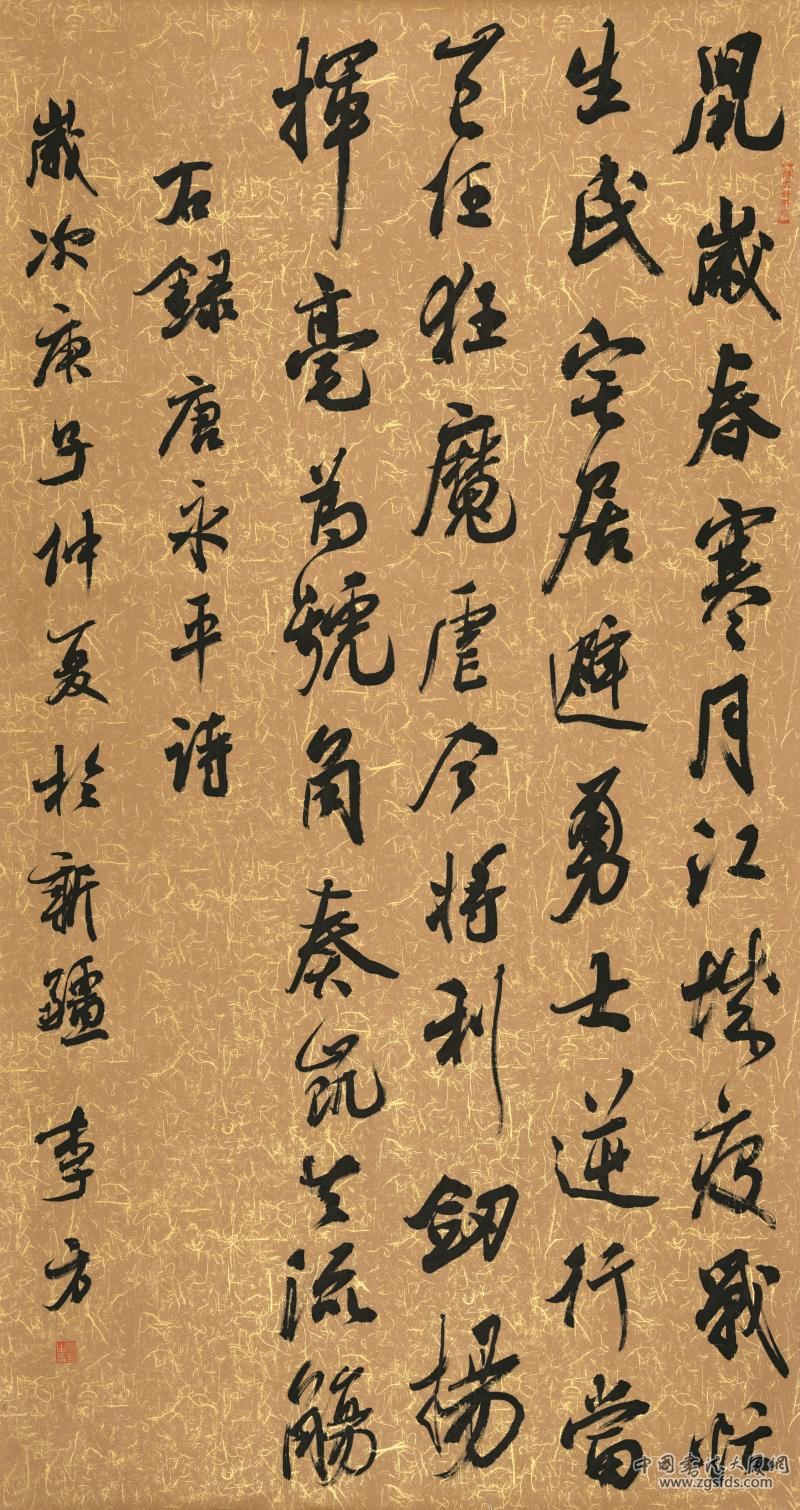 鼠歲春寒月江城疫戰忙
生民宅居避勇士逆行當
豈任狂魔虐今將利劒揚
揮毫為號角奏凱共流觴
右錄唐永平詩
歲次庚子仲夏於新疆 李方
中國書法大厦網
www.zgsfds.com